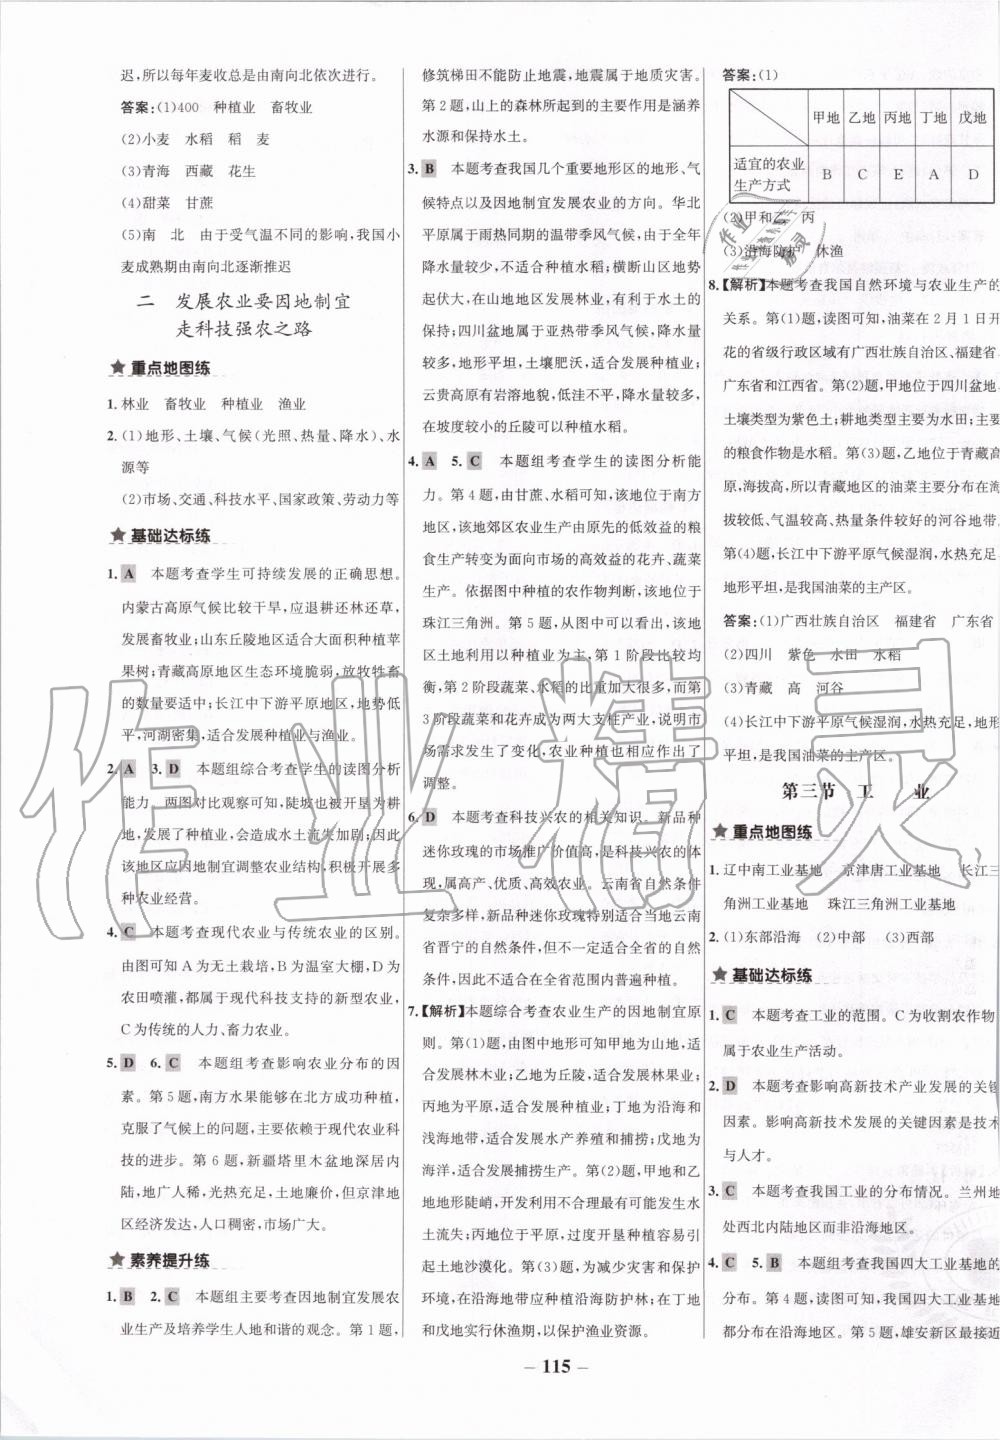 迟,所以每年麦收总是由南向北依次进行。
答案:(1)400 种植业 畜牧业
(2)小麦 水稻 稻 麦
(3)青海 西藏 花生
(4)甜菜 甘蔗
(5)南 北 由于受气温不同的影响,我国小
麦成熟期由南向北逐渐推迟
二 发展农业要因地制宜
走科技强农之路
★重点地图练
1. 林业 畜牧业 种植业 渔业
2. (1)地形、土壤、气候(光照、热量、降水)、水
源等
(2)市场、交通、科技水平、国家政策、劳动力等
★基础达标练
1. A 本题考查学生可持续发展的正确思想。
内蒙古高原气候比较干旱,应退耕还林还草,
发展畜牧业;山东丘陵地区适合大面积种植苹
果树;青藏高原地区生态环境脆弱,放牧牲畜
的数量要适中;长江中下游平原地区,地势低
平,河湖密集,适合发展种植业与渔业。
2. A 3. D 本题组综合考查学生的读图分析
能力。两图对比观察可知,陡坡也被开垦为耕
地,发展了种植业,会造成水土流失加剧;因此
该地区应因地制宜调整农业结构,积极开展多
种农业经营。
4. C 本题考查现代农业与传统农业的区别。
由图可知 A 为无土栽培,B 为温室大棚,D 为
农田喷灌,都属于现代科技支持的新型农业,
C 为传统的人力、畜力农业。
5. D 6. C 本题组考查影响农业分布的因
素。第 5 题,南方水果能够在北方成功种植,
克服了气候上的问题,主要依赖于现代农业科
技的进步。第 6 题,新疆塔里木盆地深居内
陆,地广人稀,光热充足,土地廉价,但京津地
区经济发达,人口稠密,市场广大。
★素养提升练
1. B 2. C 本题组主要考查因地制宜发展农
业生产及培养学生人地和谐的观念。第 1 题,
修筑梯田不能防止地震,地震属于地质灾害。
第 2 题,山上的森林所起到的主要作用是涵养
水源和保持水土。
3. B 本题考查我国几个重要地形区的地形、气
候特点以及因地制宜发展农业的方向。华北
平原属于雨热同期的温带季风气候,由于全年
降水量较少,不适合发展水稻;横断山区地形
起伏大,在山地地区发展林业,有利于水土的
保持;四川盆地属于亚热带季风气候,降水量
较多,地形平坦,土壤肥沃,适合发展种植业;
云贵高原有岩溶地貌,低洼不平,降水量较多,
在坡度较小的丘陵可以种植水稻。
4. A 5. C 本题组考查学生的读图分析能
力。第 4 题,由甘蔗、水稻可知,该地位于南方
地区,该地郊区农业生产由原先的低效益的粮
食生产转变为面向市场的高效益的花卉、蔬菜
生产。依据图中种植的农作物判断,该地位于
珠江三角洲。第 5 题,从图中可以看出,该地
区土地利用以种植业为主,第 1 阶段比较均
衡,第 2 阶段蔬菜、水稻的比重加大,而第
3 阶段蔬菜和花卉成为两大支柱产业,说明市
场需求发生了变化,农业种植也相应作出了
调整。
6. D 本题考查科技兴农的相关知识。新品种
迷你玫瑰的市场推广价值高,是科技兴农的体
现,属于高产、优质、高效农业。云南省自然条件
复杂多样,新品种迷你玫瑰特别适合当地云南
省晋宁的自然条件,但不一定适合全省的自然条
件,因此不适合在全省范围内普遍种植。
7.【解析】本题综合考查农业生产的因地制宜原
则。第(1)题,由图中地形可知甲地为山地,适
合发展林木业;乙地为丘陵,适合发展林果业;
丙地为平原,适合发展种植业;丁地为沿海和
浅海地带,适合发展水产养殖和捕捞;戊地为
海洋,适合发展捕捞生产。第(2)题,甲地和乙
地地形陡峭,开发利用不合理最有可能发生水
土流失;丙地为平原,过度开垦草原容易引
起土地沙漠化。第(3)题,为减少灾害和保护
环境,在沿海地带应种植沿海防护林;在丁地
和戊地实行休渔期,以保护渔业资源。
答案:(1)
甲地 乙地 丙地 丁地 戊地
适宜的农业
生产方式 B C E A D
(2)甲和乙 丙
(3)沿海防护 休渔
8.【解析】本题考查我国自然环境与农业生产的
关系。第(1)题,读图可知,油菜在 2 月 1 日开
花的省级行政区域有广西壮族自治区、福建省、
广东省和江西省。第(2)题,甲地位于四川盆地,
土壤类型为紫色土;耕地类型主要为水田;主要
的粮食作物是水稻。第(3)题,乙地位于青藏高
原,海拔高,所以青藏地区的油菜主要分布在海
拔较低、气温较高、热量条件较好的河谷地带。
第(4)题,长江中下游平原气候湿润,水热充足,
地形平坦,是我国油菜的主产区。
答案:(1)广西壮族自治区 福建省 广东省
(2)四川 紫色 水田 水稻
(3)青藏 高 河谷
(4)长江中下游平原气候湿润,水热充足,地形
平坦,是我国油菜的主产区。
第三节 工 业
★重点地图练
1. 辽中南工业基地 京津唐工业基地 长江三
角洲工业基地 珠江三角洲工业基地
2. (1)东部沿海 (2)中部 (3)西部
★基础达标练
1. C 本题考查工业的范围。C 为收割农作物,
属于农业生产活动。
2. D 本题考查影响高新技术产业发展的关键
因素。影响高新技术发展的关键因素是技术
与人才。
3. C 本题考查我国工业的分布情况。兰州地
处西北内陆地区而非沿海地区。
4. C 5. B 本题组考查我国四大工业基地的
分布。第 4 题,读图可知,我国四大工业基地
分布在沿海地区。第 5 题,雄安新区最接近
– 115 –
作业精灵